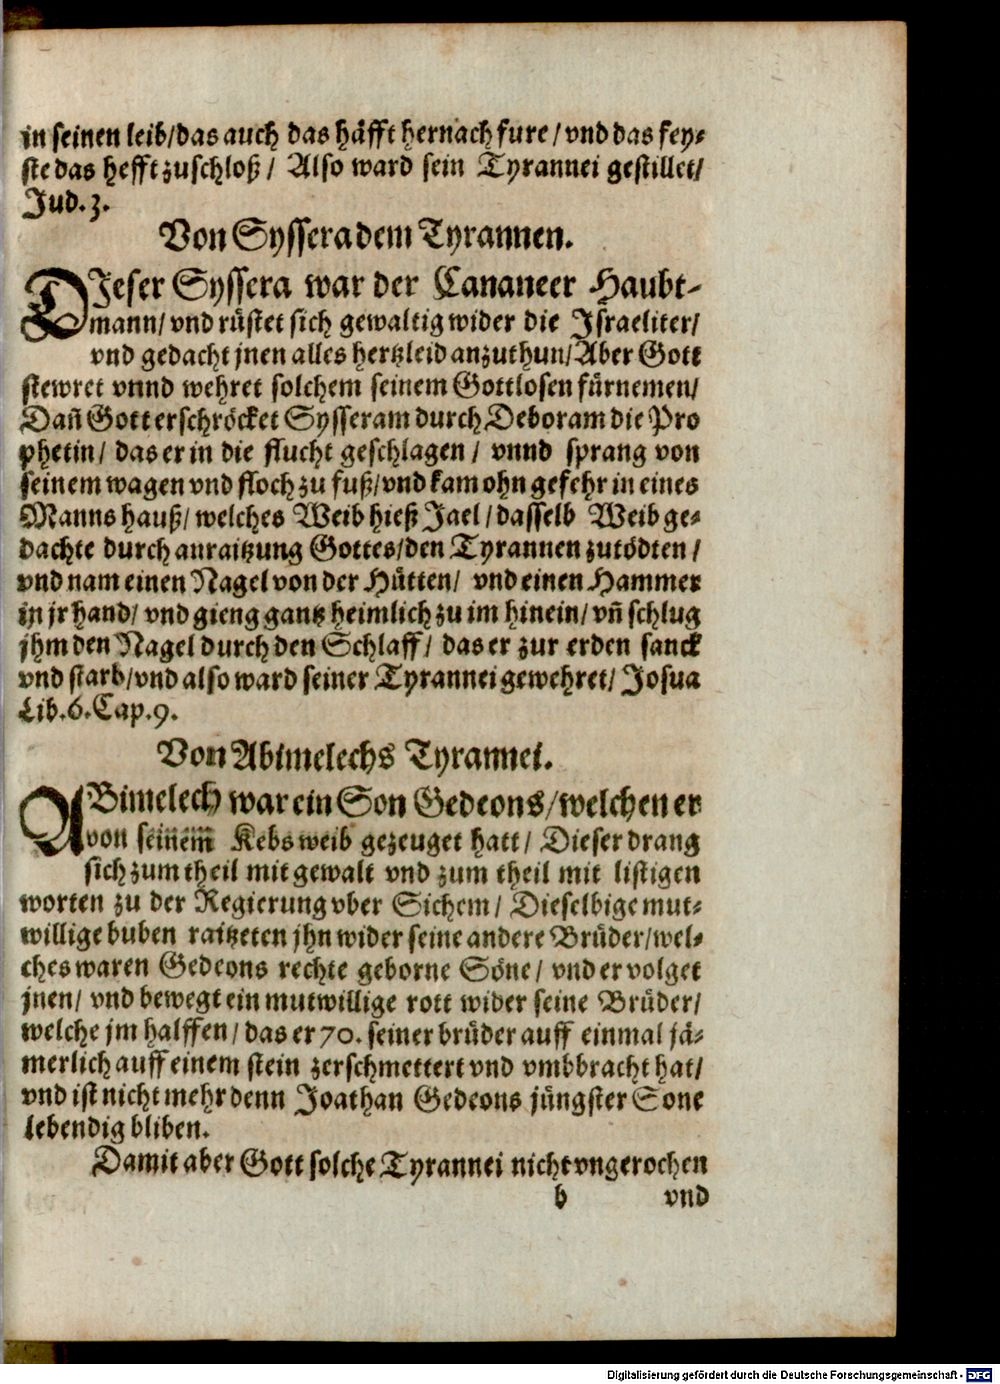 in seinen leib/das auch das häfft hernach fure/vnd das fey-
ste das hefft zuschloß/ Also ward sein Tyrannei gestillet/
Jud.3.
Von Syssera dem Tyrannen.
DIeser Syssera war der Cananeer Haubt-
mann/vnd rüstet sich gewaltig wider die Israeliter/
vnd gedacht jnen alles hertzleid anzuthun/Aber Gott
stewret vnnd wehret solchem seinem Gottlosen fürnemen/
Dañ Gott erschröcket Sysseram durch Deboram die Pro
phetin/ das er in die flucht geschlagen/ vnnd sprang von
seinem wagen vnd floch zu fuß/vnd kam ohn gefehr in eines
Manns hauß/welches Weib hieß Jael/dasselb Weib ge-
dachte durch anraitzung Gottes/den Tyrannen zutödten/
vnd nam einen Nagel von der Hütten/ vnd einen Hammer
in jr hand/ vnd gieng gantz heimlich zu im hinein/vñ schlug
jhm den Nagel durch den Schlaff/ das er zur erden sanck
vnd starb/vnd also ward seiner Tyrannei gewehret/ Josua
Lib.6.Cap.9.
Von Abimelechs Tyrannei.
ABimelech war ein Son Gedeons/welchen er
von seinem Kebsweib gezeuget hatt/ Dieser drang
sich zum theil mit gewalt vnd zum theil mit listigen
worten zu der Regierung vber Sichem/ Dieselbige mut-
willige buben raitzeten jhn wider seine andere Brüder/wel-
ches waren Gedeons rechte geborne Söne/ vnd er volget
jnen/ vnd bewegt ein mutwillige rott wider seine Brüder/
welche jm halffen/das er 70. seiner brüder auff einmal jä-
merlich auff einem stein zerschmettert vnd vmbbracht hat/
vnd ist nicht mehr denn Joathan Gedeons jüngster Sone
lebendig bliben.
Damit aber Gott solche Tyrannei nicht vngerochen
b vnd
Digitalisierung gefördert durch die Deutsche Forschungsgemeinschaft - DFG